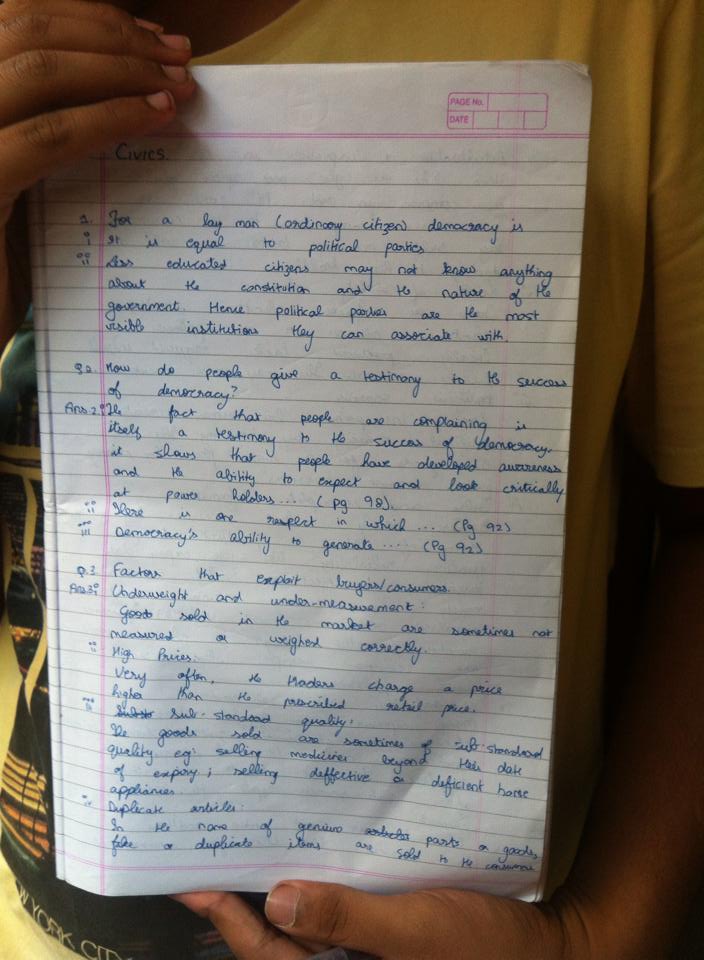 PAGE No.
DATE
Civics.
1. For a lay man (ordinary citizen) democracy is
i It is equal to political parties
ii Less educated citizens may not know anything
about the constitution and the nature of the
government. Hence political parties are the most
visible institutions they can associate with.
Q2. How do people give a testimony to the success
of democracy?
Ans 2. i The fact that people are complaining is
itself a testimony to the succes of democracy.
it shows that people have developed awareness
and the ability to expect and look critically
at power holders... (pg 98).
ii There is one respect in which ... (Pg 92)
iii Democracy's ability to generate .... (Pg 92)
Q.3. Factors that exploit buyers/consumers.
Ans 3. i Underweight and under-measurement:
Goods sold in the market are sometimes not
measured or weighed correctly.
ii High Prices:
Very often, the traders charge a price
higher than the prescribed retail price.
iii Sub-standard quality:
The goods sold are sometimes of sub-standard
quality eg: selling medicines beyond their date
of expiry; selling deffective or deficient home
appliances.
iv Duplicate articles:
In the name of genuine parts or goods,
fake or duplicate items are sold to the consumers
NEW YORK CITY